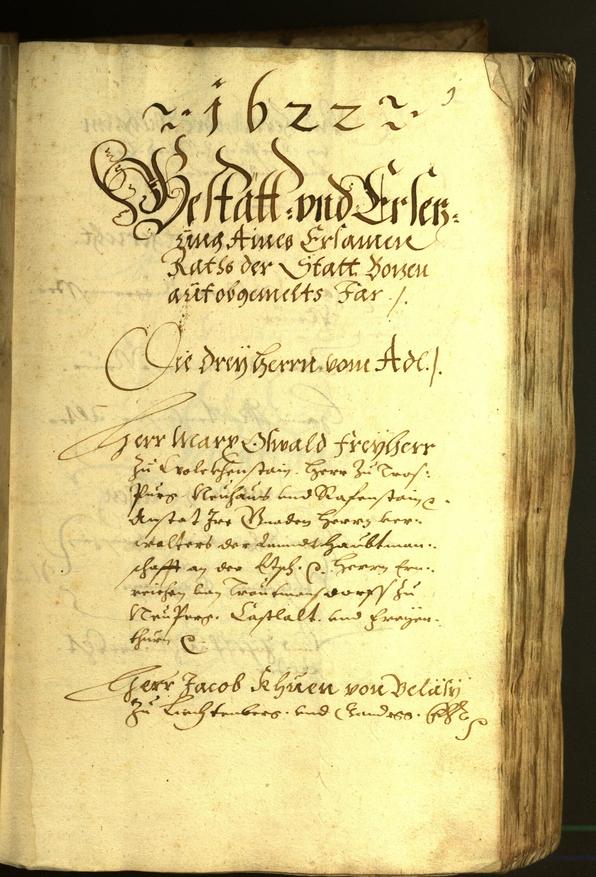 1622
Bestätt: und Ersez:
zung Aines Ersamen
Raths der Statt Bozen
auf obgemelts Jar /.
Die drey herrn vom Adl /.
Herr Marx Oswald Freyherr
zu Wolckhenstain. Herr zu Tros:
Purg. Neuhaus und Rafenstain
Anstat Irer Gnaden Herrn ver:
walters der Lanndt haubtman:
schafft an der Etsch. Herrn
von Trautmansdorff zu
NeuPerg. Castlalt. und Freyen:
thurn
Herr Jacob Khuen von Beläsy
zu Liechtenberg. und Gandegg.